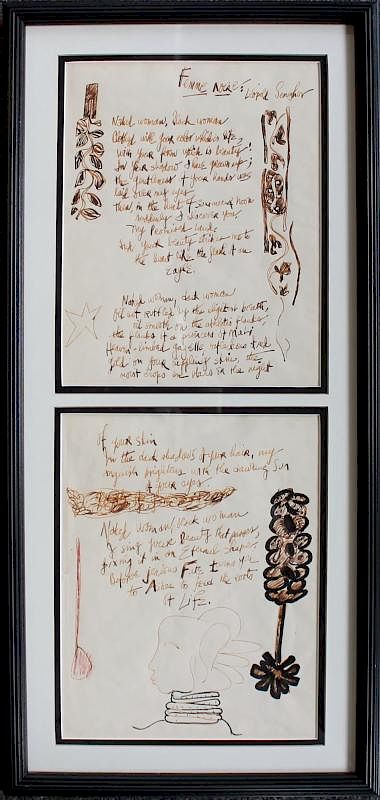 Femme Noire: Léopold Senghor
Naked woman, dark woman
Clothed with your color which is life,
with your form which is beauty!
In your shadow I have grown up;
the gentleness of your hands was
laid over my eyes
then, in the heart of summer and noon
suddenly I discover you,
My Promised Land
And your beauty strikes me to
the heart like the flash of an
eagle.
Naked woman, dark woman
Oil not ruffled by the slightest breath,
oil smooth on the athletes flanks
the flanks of a princess of Mali
Heaven-limbed gazelle, of
gold on your skin, the
most drops on in the night
of your skin
In the dark shadows of your hair, my
anguish brightens with the dawning Sun
of your eyes.
Naked woman/black woman
I sing your Beauty that passes,
fixing it in an Eternal Shape
Before Jealous Fate turns you
to Ashes to feed the roots
of Life.